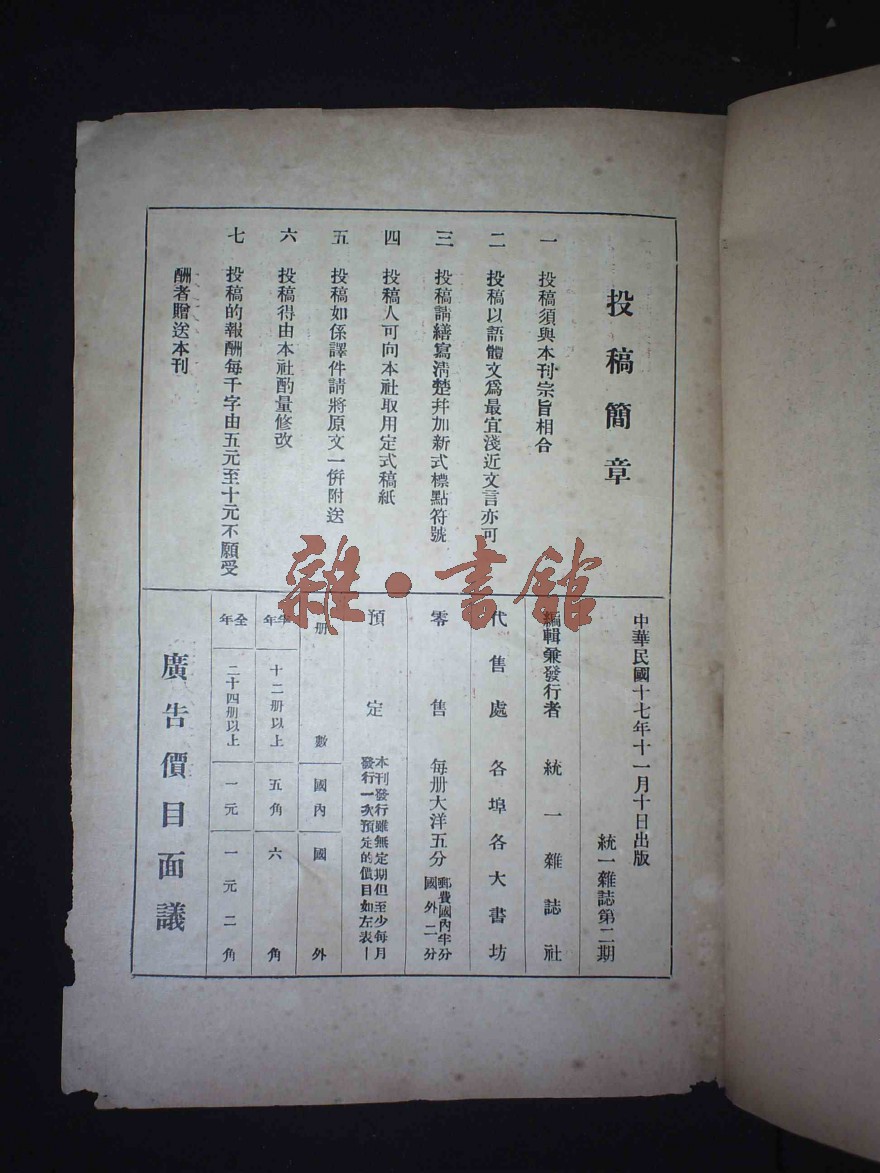 投稿簡章
一 投稿須與本刊宗旨相合
二 投稿以語體文爲最宜淺近文言亦可
三 投稿請繕寫淸楚幷加新式標點符號
四 投稿人可向本社取用定式稿紙
五 投稿如係譯件請將原文一併附送
六 投稿得由本社酌量修改
七 投稿的報酬每千字由五元至十元不願受
酬者贈送本刊
中華民國十七年十一月十日出版
統一雜誌第二期
編輯兼發行者 統一雜誌社
代售處 各埠各大書坊
零售 每册大洋五分 郵費國內半分
國外二分
預定 本刊發行雖無定期但至少每月
發行一次預定的價目如左表—
册數 國內 國外
半年 十二册以上 五角 六角
全年 二十四册以上 一元 一元二角
廣告價目面議
雜·書館